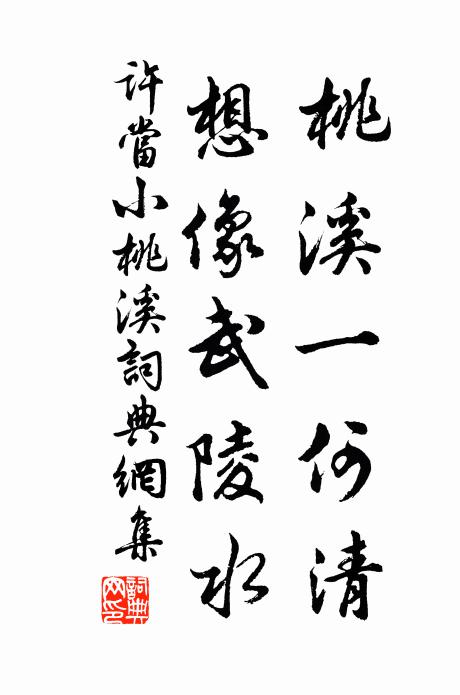 桃溪一何清
想像武陵水
許當小桃溪詞典網集
詞典網印